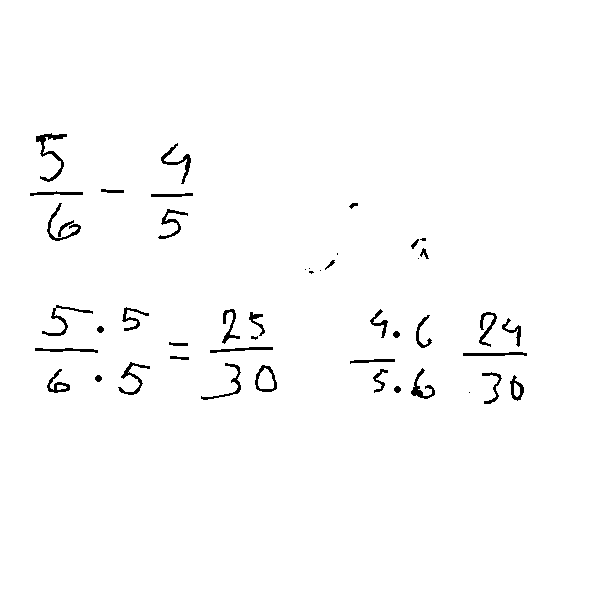 5/6 - 4/5
5 . 5 / 6 . 5 = 25/30 4 . 6 / 5 . 6 24/30